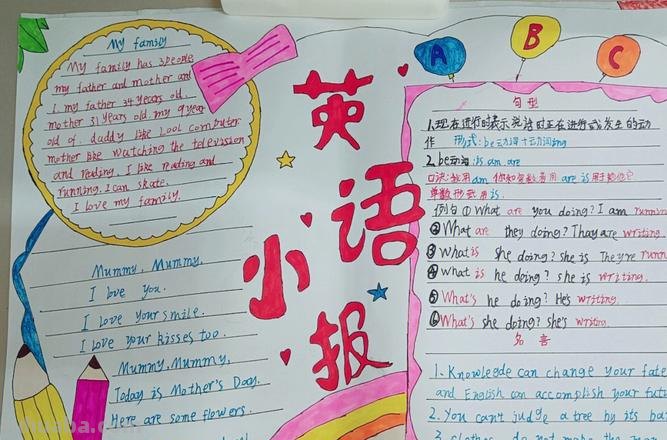 My family
My family has 3 people
my father and mother and
I. my father 34 years old.
mother 31 years old. my 9 year
old of. daddy like Look computer
mother like watching the television
and reading. I like reading and
running. I can skate.
I love my family.
Mummy, Mummy,
I love you.
I love your smile.
I love your kisses too.
Mummy, Mummy,
Today is Mother's Day.
Here are some flowers.
英
语
小
报
A
B
C
句型
1.现在进行时表示说话时正在进行或发生的动
作 形式:be动词+动词ing
2.be动词:is am are
口诀:我用am 你和复数要用are is用于
单数形式用is.
例句①What are you doing? I am runnin
②What are they doing? Thay are writing.
③What is she doing? she is They're runn
④what is he doing? she is writing.
⑤What's he doing? He's writing.
⑥What's she doing? she's writing.
名言
1. Knowlegde can change your fate
and English can accomplish your futu
2. You can't judge a tree by its ba
3. clothes do not make the man